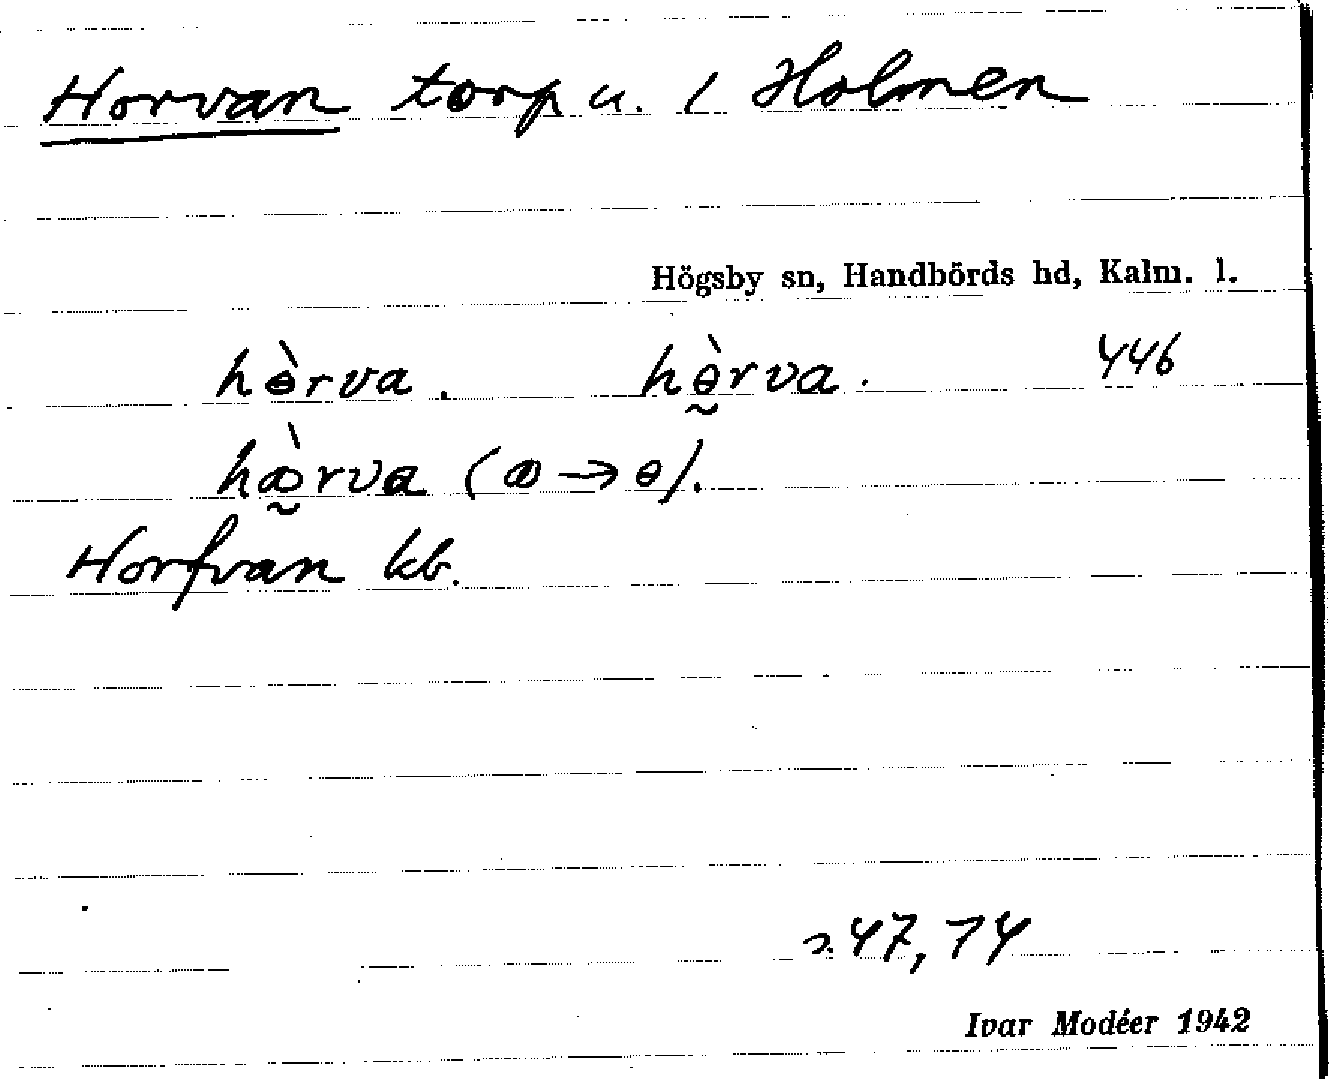 Horvan torp u. 1 Holmen
Högsby sn, Handbörds hd, Kalm. l.
hɵ̀rva. hɵ̰̀rva. 446
Horfvan kb.
47, 74
Ivar Modéer 1942